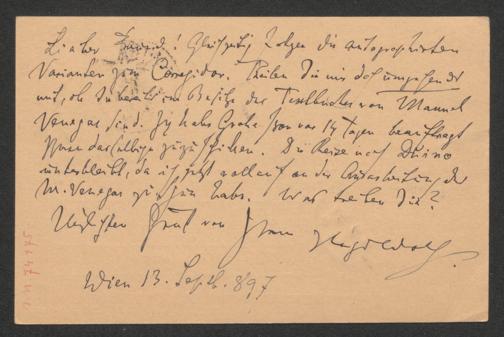 Lieber Freund! Gleichzeitig folgen die autographirten
Varianten zum Corregidor. Theilen Sie mir doch umgehend
mit, ob Sie bereits im Besitze des Textbuches von Manuel
Venegas sind. Ich habe Grohe schon vor 14 Tagen beauftragt
Ihnen dasselbe zuzuschicken. Die Reise nach Duino
unterbleibt, da ich jetzt vollauf an der Ausarbeitung des
M. Venegas zu thun habe. Was treiben Sie?
Herzlichsten Gruß von Ihrem Hugo Wolf.
Wien 13. Sept. 897